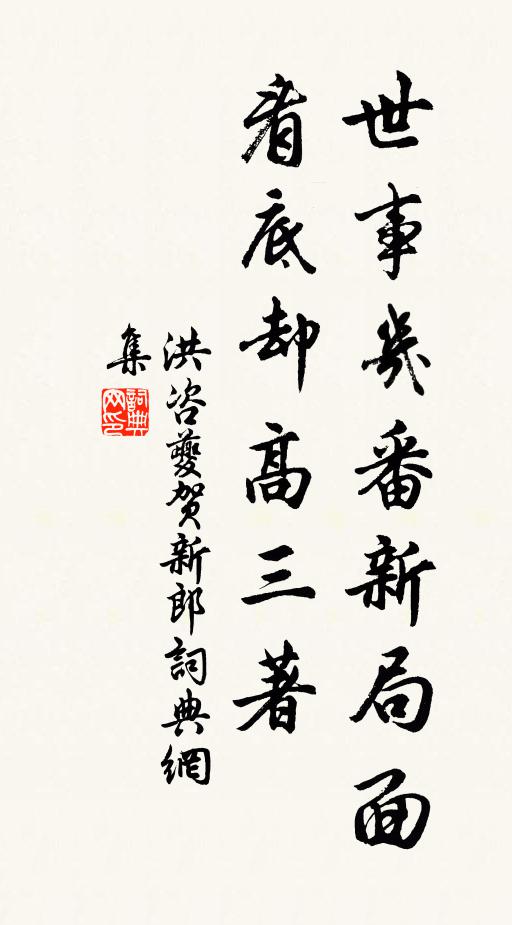 世事幾番新局面
看底却高三著
洪咨夔贺新郎詞典網
集
詞典
网印